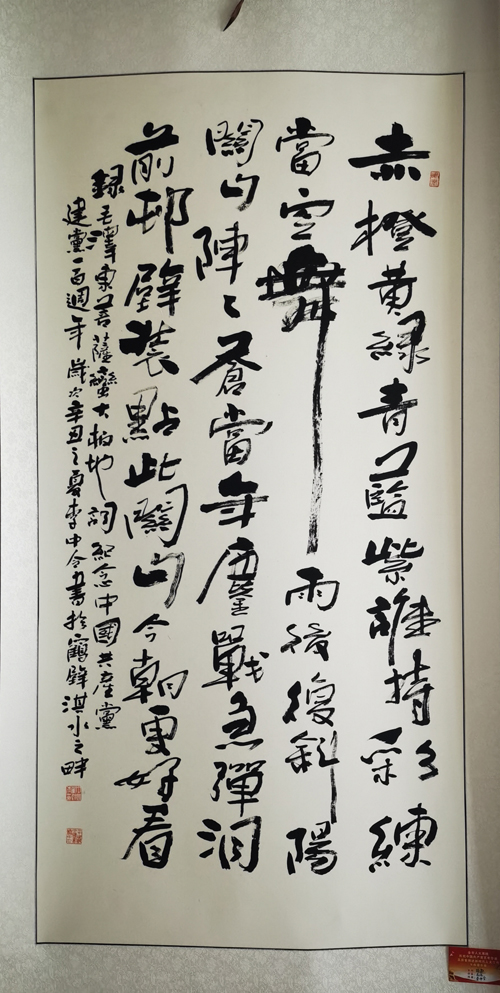 赤橙黄綠青藍紫誰持彩練
當空舞雨後復斜陽
關山陣々蒼當年鏖戰急彈洞
前邨壁裝點此關山今朝更好看
録毛澤東菩薩蠻大柏地詞紀念中國共產黨
建黨一百週年歲次辛丑之夏李中令書於鶴壁淇水之畔